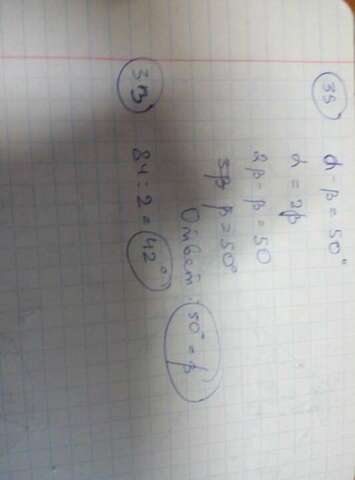 35
α - β = 50°
α = 2β
2β - β = 50
β = 50°
Ответ: 50° = β
33
84 : 2 = 42°